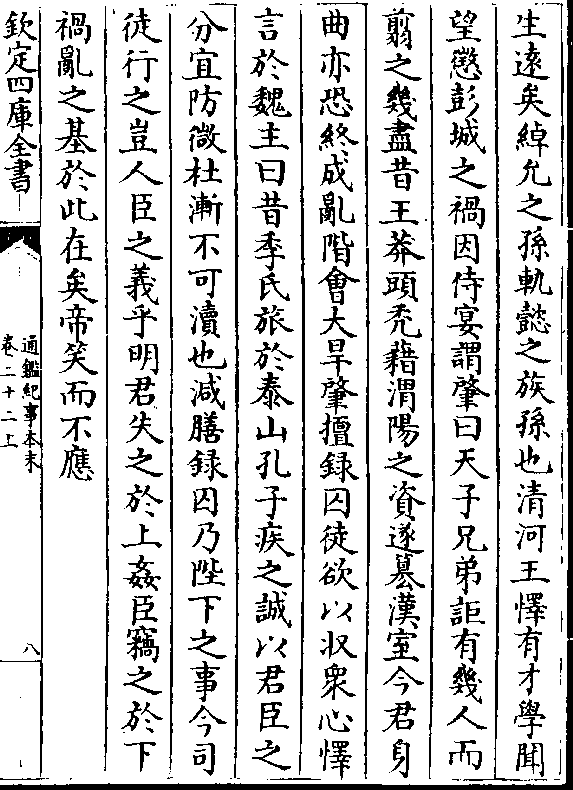 生遠矣綽允之孫軌懿之族孫也清河王懌有才學聞
望懲彭城之禍因侍宴謂肇曰天子兄弟詎有幾人而
翦之幾盡昔王莽頭禿藉渭陽之資遂簒漢室今君身
曲亦恐終成亂階會大旱肇擅録囚徒欲以収衆心懌
言於魏主曰昔季氏旅於泰山孔子疾之誠以君臣之
分宜防微杜漸不可瀆也減膳録囚乃陛下之事今司
徒行之豈人臣之義乎明君失之於上姦臣竊之於下
禍亂之基於此在矣帝笑而不應
欽定四庫全書
通鑑紀事本末
卷二十二上
八